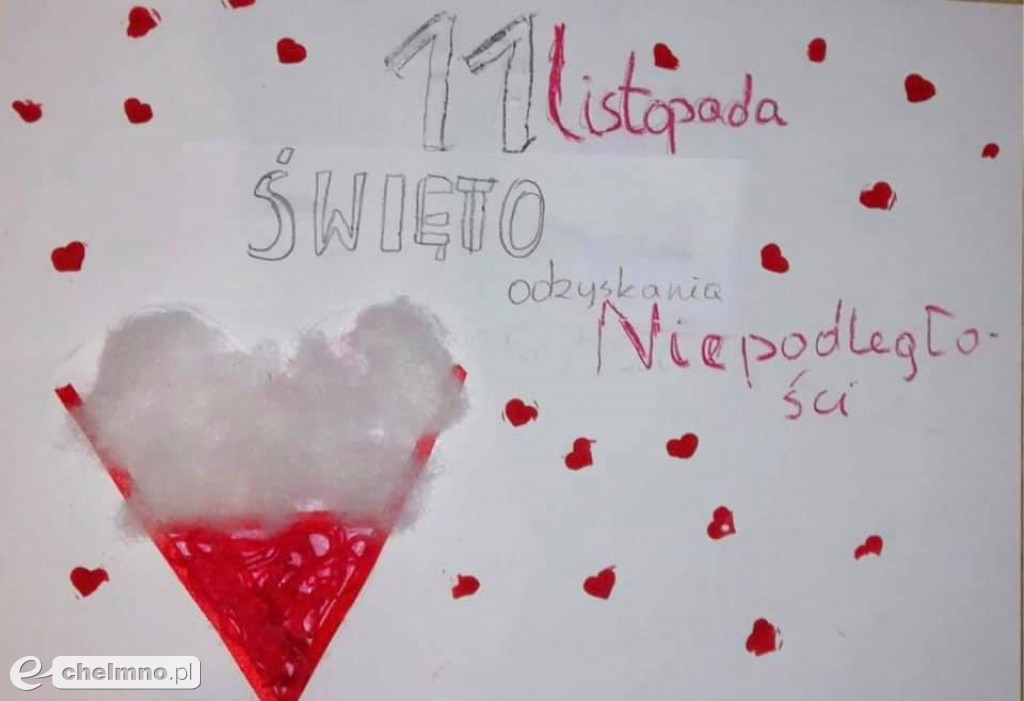 11 listopada
ŚWIĘTO
odzyskania
Niepodległo-
ści
e-chelmno.pl